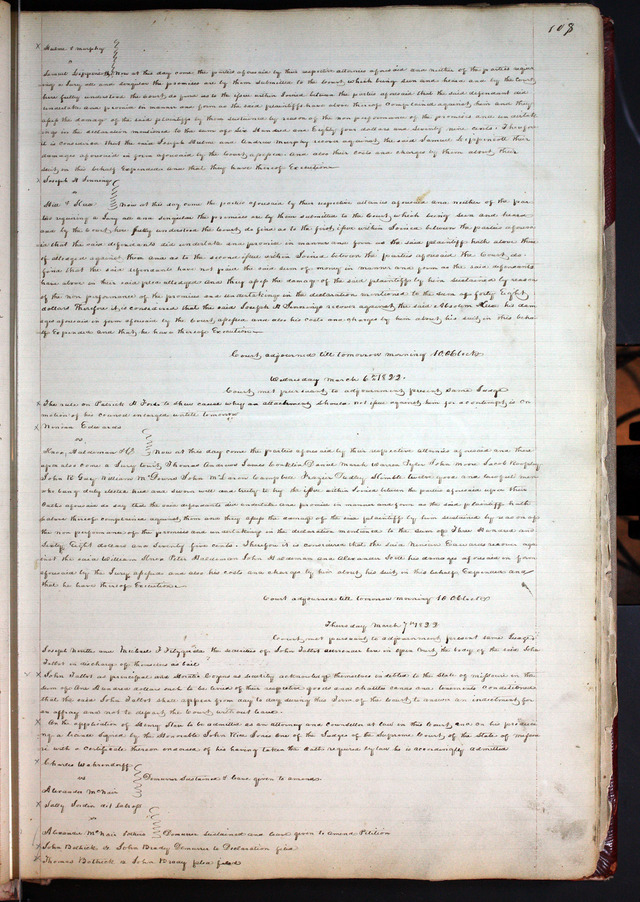 108
Hulme & Murphy
vs
Samuel Lippincott Now at this day come the parties aforesaid by their respective attornies aforesaid and neither of the parties requi
ring a Jury all and singular the premises are by them submitted to the Court, which being seen and heard and by the Court
here fully understood the Court do find as to the issue within Joined between the parties aforesaid that the said defendant did
undertake and promise in manner and form as the said plaintiffs have above thereof complained against him and they
assess the damage of the said plaintiffs by them sustained by reason of the non performance of the promises and undertak
ings in the declaration mentioned to the sum of Six Hundred and Eighty four dollars and Seventy nine Cents. Therefore
it is considered that the said Joseph Hulme and Andrew Murphy recover against the said Samuel Lippincott their
damages aforesaid in form aforesaid by the Court assessed and also their costs and charges by them about their
suit in this behalf Expended and that they have thereof Execution
Joseph H Jennings
vs
& Rice Now at this day come the parties aforesaid by their respective attornies aforesaid and neither of the par
ties requiring a Jury all and singular the premises are by them submitted to the Court which being seen and heard
and by the Court here fully understood the Court do find as to the first issue within Joined between the parties aforesa
id that the said defendants did undertake and promise in manner and form as the said plaintiff hath above there
of alledged against them and as to the second issue within Joined between the parties aforesaid the Court do
find that the said defendants have not paid the said sum of money in manner and form as the said defendants
have above in their said plea alledged and they assess the damage of the said plaintiff by him sustained by reason
of the non performance of the promises and undertakings in the declaration mentioned to the sum of forty Eight
dollars Therefore it is considered that the said Joseph H Jennings recover against the said Rice his dam
ages aforesaid in form aforesaid by the Court assessed and also his costs and charges by him about his suit in this beha
lf Expended and that he have thereof Execution
Court adjourned till tomorrow morning 10 OClock
Wednesday March 6th 1822
Court met pursuant to adjournment present same Judge
The rule on Patrick H Ford to shew cause why an attachment should not issue against him for a contempt is on
motion of his counsel enlarged untill tomorrow
Ninian Edwards
vs
Rice, Haldeman & Co Now at this day come the parties aforesaid by their respective attornies aforesaid and there
upon also come a Jury towit Thomas Andrews James Conklin Daniel March Warren Tyler John Moore Jacob
John R Guy William McGowns John McLaron Campbell Frazier Dudley Stimble twelve good and lawfull men
who being duly elected tried and sworn well and truly to try the issue within Joined between the parties aforesaid upon their
Oath aforesaid do say that the said defendants did undertake and promise in manner and form as the said plaintiff hath
above thereof complained against them and they assess the damage of the said plaintiff by him sustained by reason of
the non performance of the promises and undertakings in the declaration mentioned to the sum of Three Hundred and
Sixty Eight dollars and Seventy five cents. Therefore it is considered that the said Ninian Edwards recover aga
inst the said William Rice Peter Haldeman John Haldeman and Alexander his damages aforesaid in form
aforesaid by the Jury assessed and also his costs and charges by him about his suit in this behalf Expended and
that he have thereof Execution
Court adjourned till tomorrow morning 10 OClock
Thursday March 7th 1822
Court met pursuant to adjournment present same Judge
Joseph White and Michael F Fitzgerald the securities of John Talbot surrender him in open Court the body of the said John
Talbot in discharge of themselves as bail
John Talbot as principal and Horatio Cozens as Security acknowledge themselves indebted to the State of Missouri in the
sum of One Hundred dollars each to be levied of their respective goods and chattles lands and tenements conditioned
that the said John Talbot shall appear from day to day during this term of the Court to answer an indictment for
an affray and not to depart the Court without leave
On the application of Henry Slew to be admitted as an attorney and Counsellor at law in this Court and on his produci
ng a license signed by the Honorable John Rice Jones one of the Judges of the Supreme Court of the State of Missou
ri with a Certificate thereon endorsed of his having taken the Oath required by law he is accordingly admitted
Charles Wahrendorff
vs Demurrer Sustained & leave given to amend
Alexander McNair
Sally dit
vs
Alexander McNair Demurrer Sustained and leave given to Amend Petition
John Bobbick & John Brady Demurrer to Declaration filed
Thomas Bobbick & John Brady plea filed